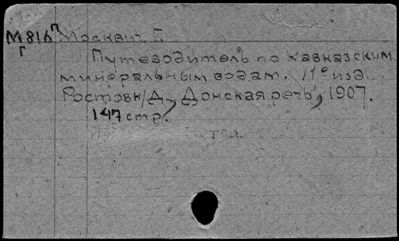 М816 Москвич Г.
Г
Путеводитель по Кавказским
минеральным водам. 11е изд.
Ростов н/Д, "Донская речь", 1907.
147 стр.